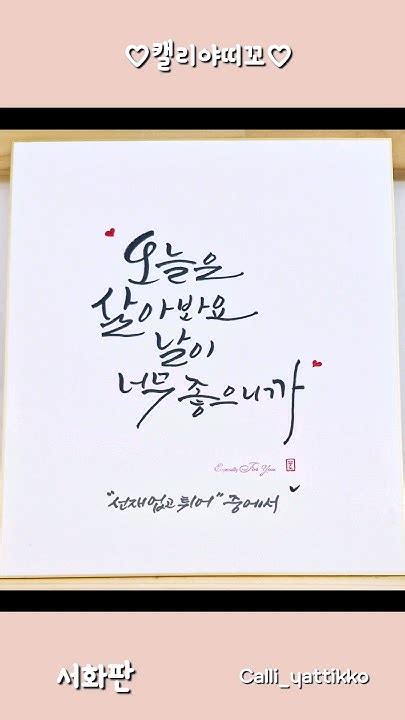 ♡캘리야띠꼬♡
오늘은
살아봐요
날이
너무 좋으니까
For You
"선재업고 튀어" 중에서
서화판
Calli_yattikko